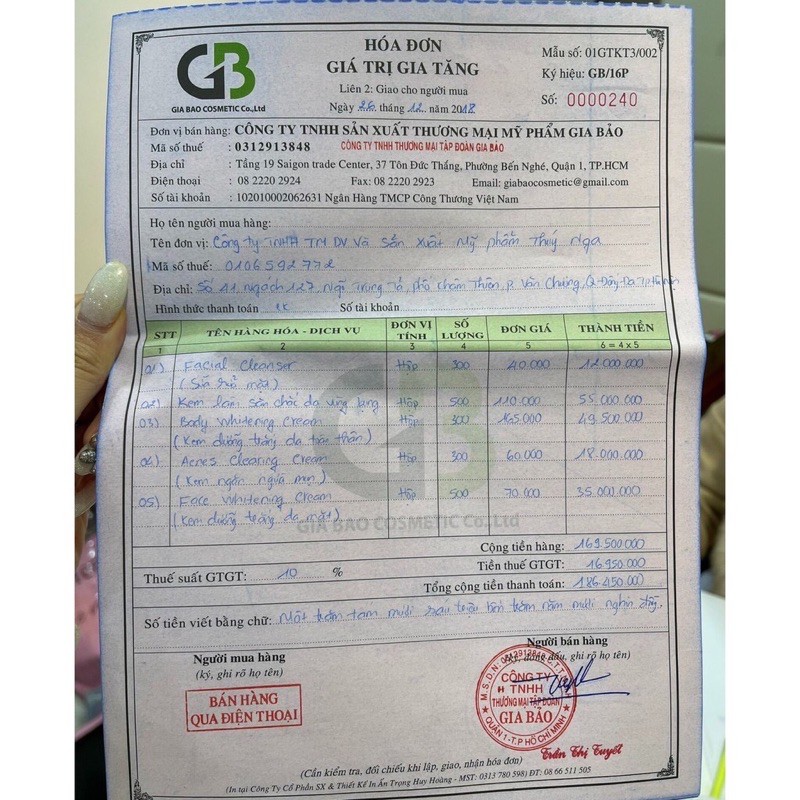 GB
GIA BAO COSMETIC Co.,Ltd
HÓA ĐƠN
GIÁ TRỊ GIA TĂNG
Liên 2: Giao cho người mua
Ngày 26 tháng 12 năm 2018
Mẫu số: 01GTKT3/002
Ký hiệu: GB/16P
Số: 0000240
Đơn vị bán hàng: CÔNG TY TNHH SẢN XUẤT THƯƠNG MẠI MỸ PHẨM GIA BẢO
Mã số thuế : 0312913848 CÔNG TY TNHH THƯƠNG MẠI TẬP ĐOÀN GIA BẢO
Địa chỉ : Tầng 19 Saigon trade Center, 37 Tôn Đức Thắng, Phường Bến Nghé, Quận 1, TP.HCM
Điện thoại : 08 2220 2924 Fax: 08 2220 2923 Email: giabaocosmetic@gmail.com
Số tài khoản : 102010002062631 Ngân Hàng TMCP Công Thương Việt Nam
Họ tên người mua hàng:
Tên đơn vị: Công ty TNHH TM DV Và Sản xuất Mỹ phẩm Thúy Nga
Mã số thuế: 0106592772
Địa chỉ: Số 41, Ngách 127, Ngõ Trung Tả, phố Khâm Thiên, P. Văn Chương, Q. Đống Đa, Tp Hà Nội
Hình thức thanh toán CK Số tài khoản
STT TÊN HÀNG HÓA - DỊCH VỤ ĐƠN VỊ TÍNH SỐ LƯỢNG ĐƠN GIÁ THÀNH TIỀN
1 2 3 4 5 6 = 4 x 5
01) Facial Cleanser Hộp 300 40.000 12.000.000
(Sữa rửa mặt)
02) Kem làm săn chắc da vùng bụng Hộp 500 110.000 55.000.000
03) Body Whitening Cream Hộp 300 165.000 49.500.000
(Kem dưỡng trắng da toàn thân)
04) Acnes Clearing Cream Hộp 300 60.000 18.000.000
(Kem ngăn ngừa mụn)
05) Face Whitening Cream Hộp 500 70.000 35.000.000
(Kem dưỡng trắng da mặt)
GB
GIA BAO COSMETIC Co.,Ltd
Cộng tiền hàng: 169.500.000
Thuế suất GTGT: 10 % Tiền thuế GTGT: 16.950.000
Tổng cộng tiền thanh toán: 186.450.000
Số tiền viết bằng chữ: Một trăm tám mươi sáu triệu bốn trăm năm mươi nghìn đồng.
Người mua hàng
(ký, ghi rõ họ tên)
BÁN HÀNG
QUA ĐIỆN THOẠI
Người bán hàng
(ký, đóng dấu, ghi rõ họ tên)
M.S.D.N: 0312913848-C.T.T.N.H.H
CÔNG TY
TNHH
THƯƠNG MẠI TẬP ĐOÀN
GIA BẢO
QUẬN 1 - T.P HỒ CHÍ MINH
Trần Thị Tuyết
(Cần kiểm tra, đối chiếu khi lập, giao, nhận hóa đơn)
(In tại Công Ty Cổ Phần SX & Thiết Kế In Ấn Trọng Huy Hoàng - MST: 0313 780 598) ĐT: 08 66 511 505